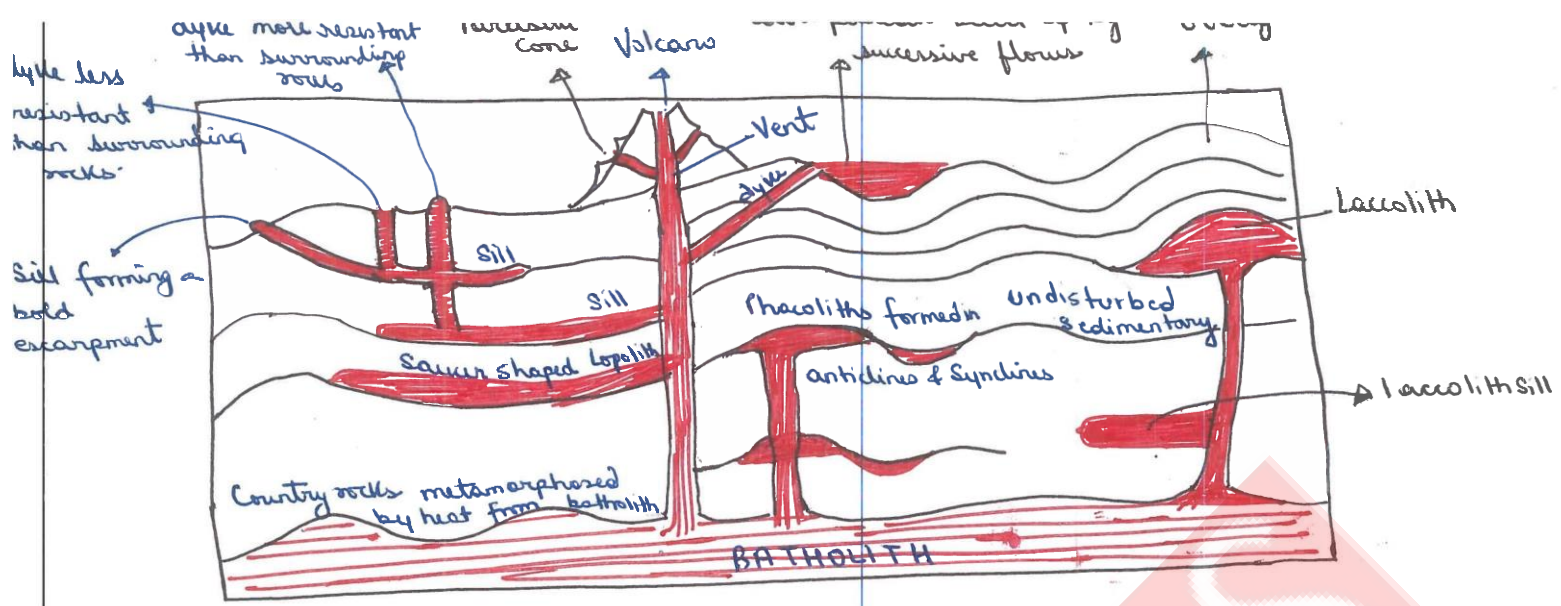 dyke more resistant
than surrounding
rocks
Cone
Volcano
successive flows
less
resistant
than surrounding
rocks.
Vent
dyke
Laccolith
Sill
Sill forming a
bold
escarpment
Sill
Phacoliths formed in
undisturbed
sedimentary
Saucer shaped Lopolith
anticlines & Synclines
Laccolith Sill
Country rocks metamorphosed
by heat from batholith
BATHOLITH